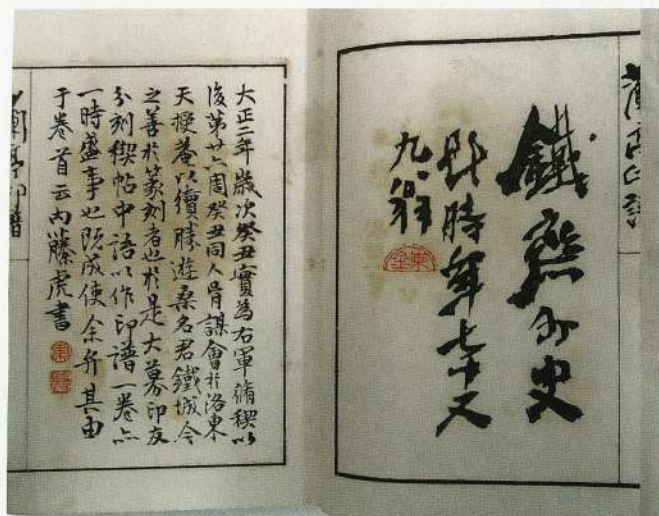 蘭亭印譜
鐵齋外史
時年七十又
九翁
大正二年歲次癸丑實為右軍脩禊以
後第廿六周癸丑同人胥謀會於洛東
天授菴以續勝遊桑名君鐵城今
之善於篆刻者也於是大募印友
分刻禊帖中語以作印譜一卷亦
一時盛事也既成使余弁其由
于卷首云內藤虎書
蘭亭印譜